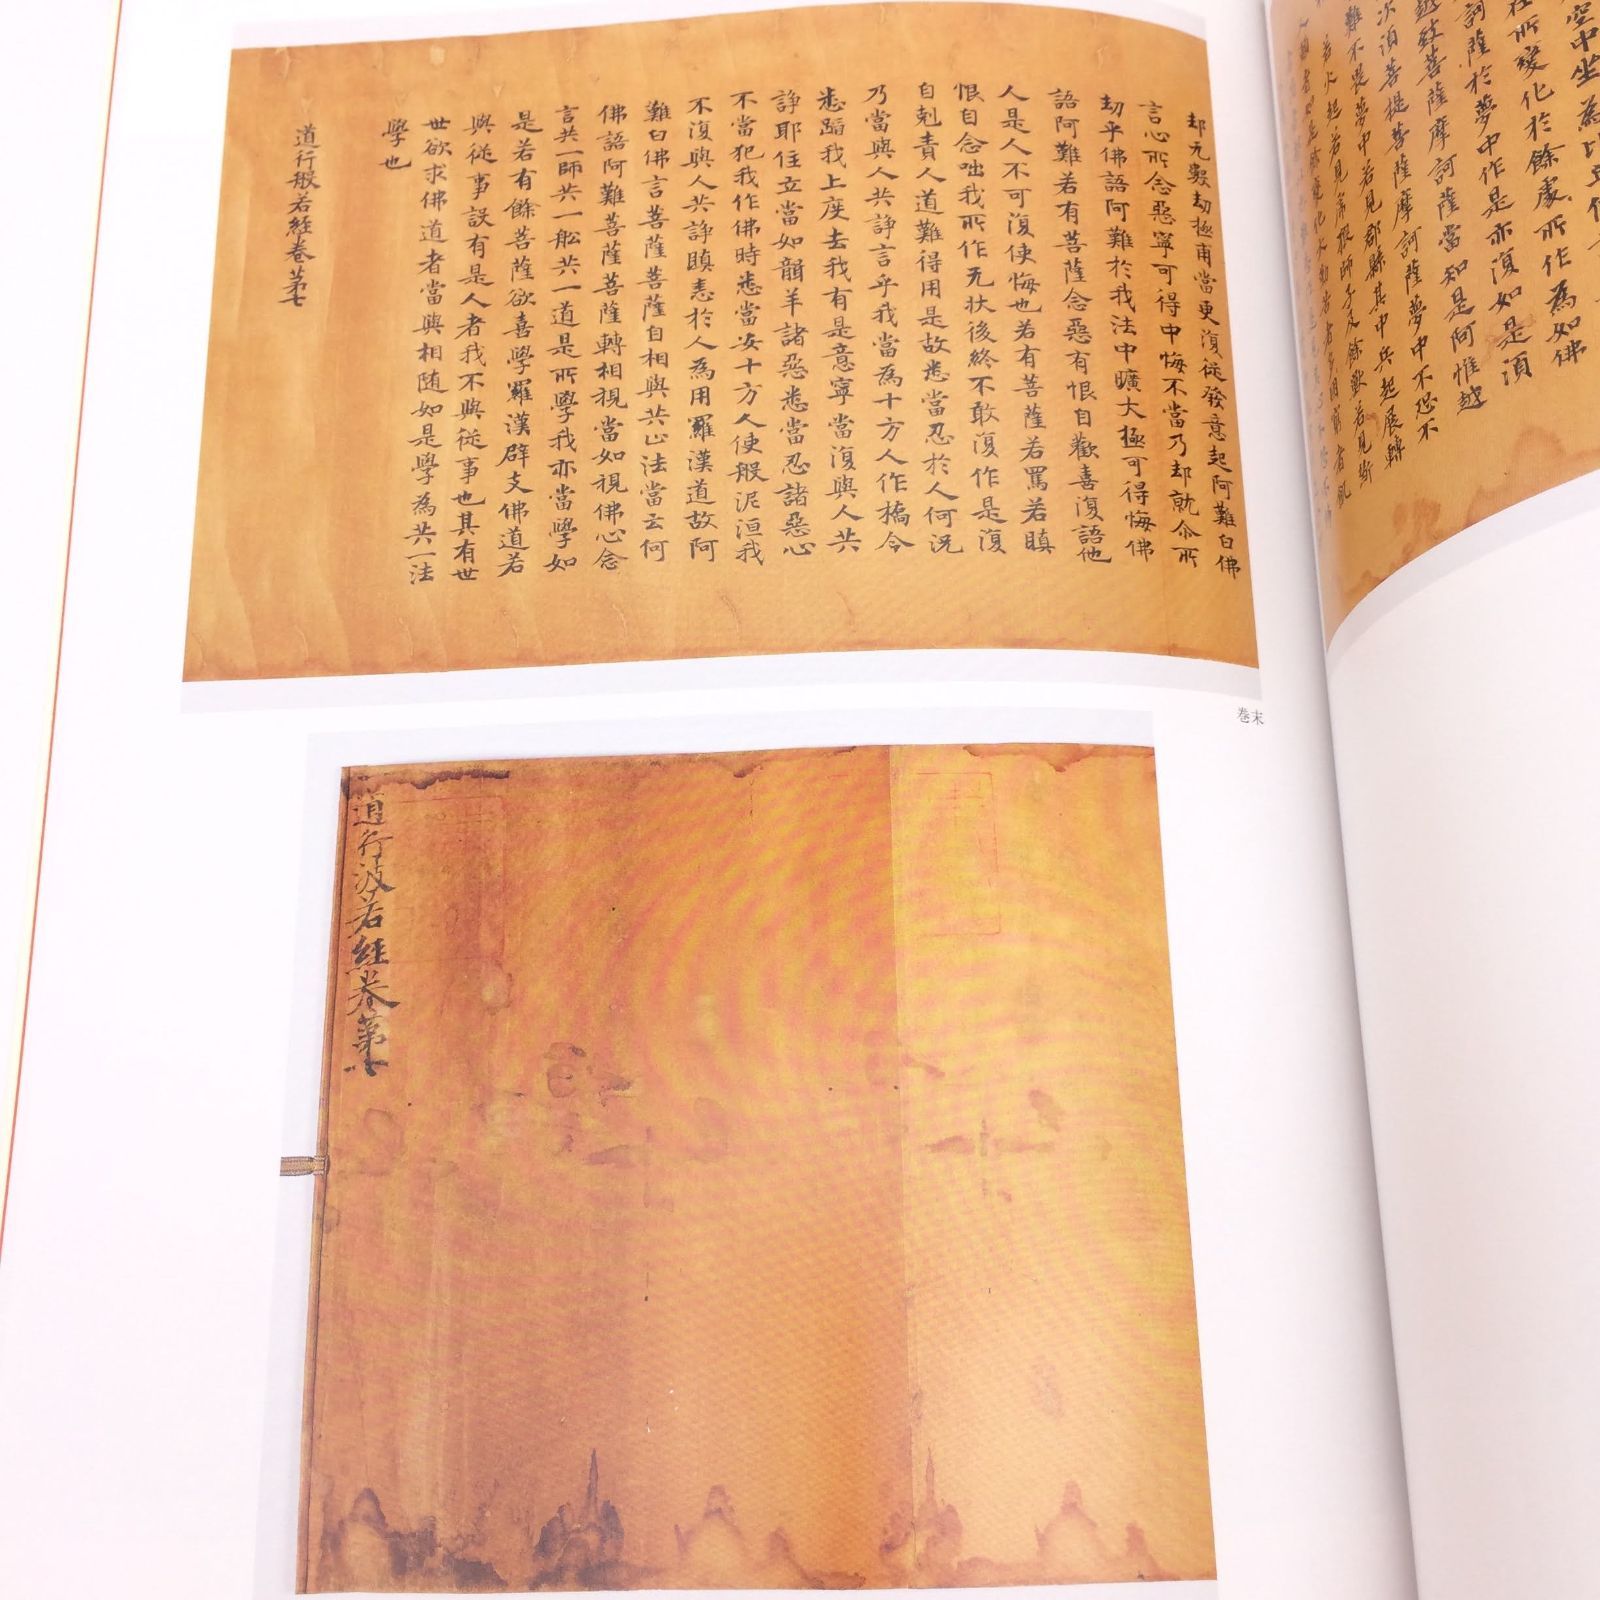 空中坐為比丘
在所變化於餘處所作為如佛
訶薩於夢中作是亦復如是須
越致菩薩摩訶薩當知是阿惟越
次須菩提菩薩摩訶薩夢中不恐不
難不畏夢中若見郡縣其中兵起展轉
若火起若見虎狼師子及餘獸若見斬
却无數劫極甫當更復從發意起阿難白佛
言心所念惡寧可得中悔不當乃却就尒所
劫乎佛語阿難於我法中曠大極可得悔佛
語阿難若有菩薩念惡有恨自歡喜復語他
人是人不可復使悔也若有菩薩若罵若瞋
恨自念咄我所作无狀後終不敢復作是復
自剋責人道難得用是故悉當忍於人何況
乃當與人共諍言乎我當為十方人作橋令
悉蹈我上度去我有是意寧當復與人共
諍耶住立當如韻羊諸惡悉當忍諸惡心
不當犯我作佛時悉當安十方人使般泥洹我
不復與人共諍瞋恚於人為用羅漢道故阿
難白佛言菩薩菩薩自相與共止法當云何
佛語阿難菩薩菩薩轉相視當如視佛心念
言共一師共一舩共一道是所學我亦當學如
是若有餘菩薩欲喜學羅漢辟支佛道若
與從事設有是人者我不與從事也其有世
世欲求佛道者當與相隨如是學為共一法
學也
道行般若經卷第七
卷末
道行波若經卷第七